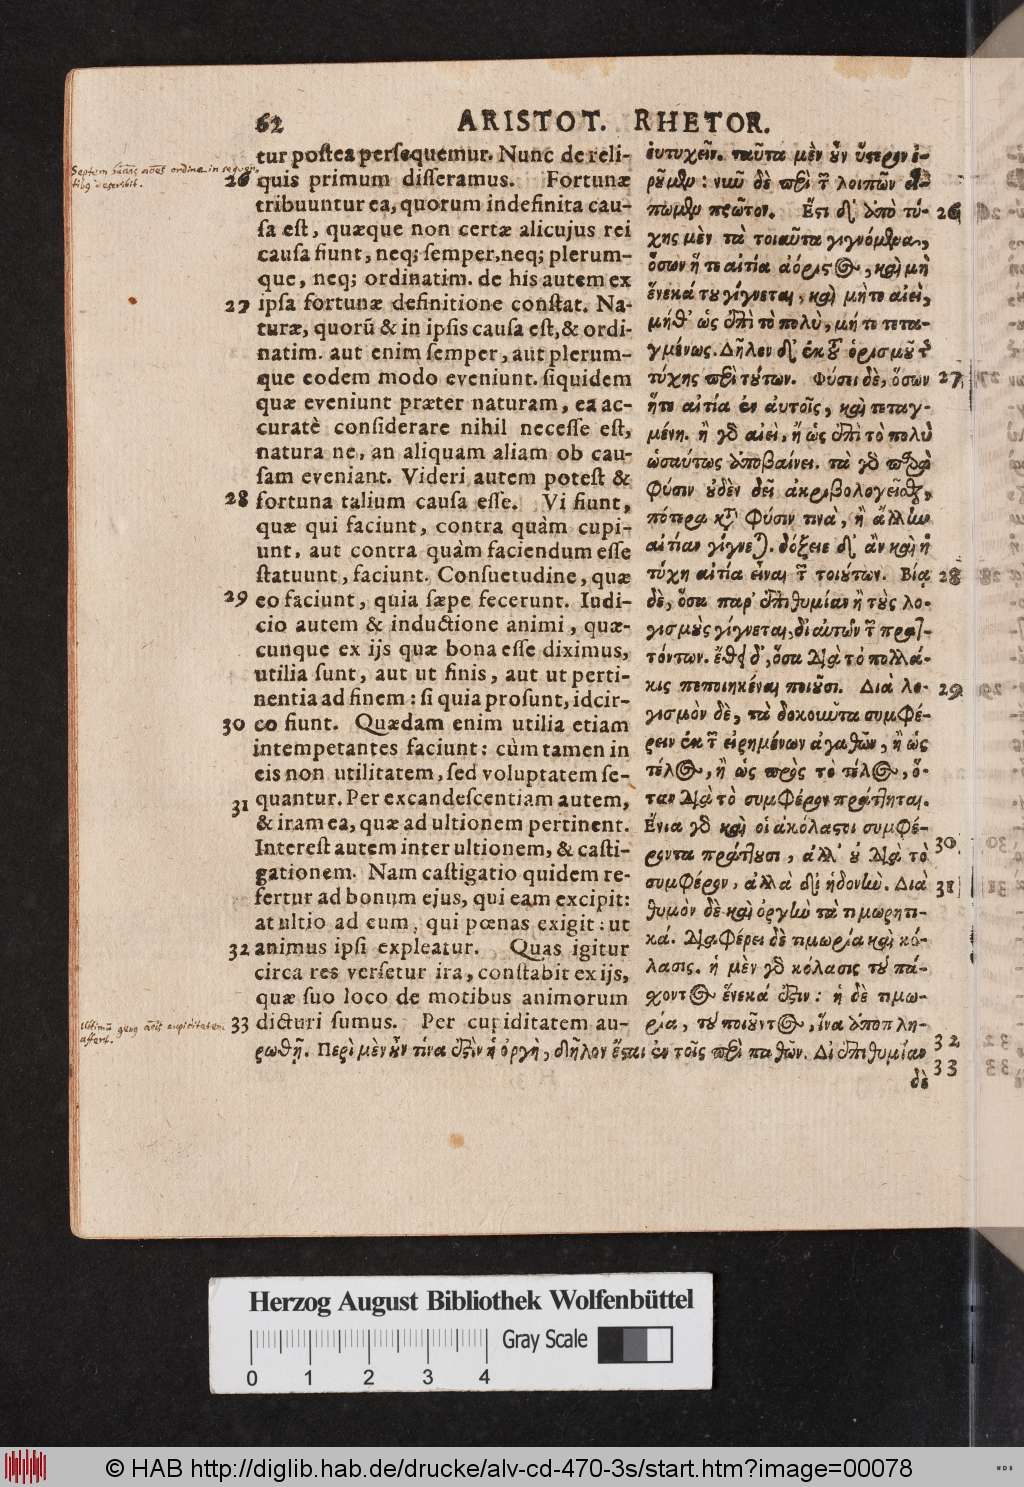 62 ARISTOT. RHETOR.
tur postea persequemur. Nunc de reli-
26 quis primum disseramus. Fortunæ
tribuuntur ea, quorum indefinita cau-
sa est, quæque non certæ alicujus rei
causa fiunt, neq; semper, neq; plerum-
que, neq; ordinatim. de his autem ex
27 ipsa fortunæ definitione constat. Na-
turæ, quorū & in ipsis causa est, & ordi-
natim. aut enim semper, aut plerum-
que eodem modo eveniunt. siquidem
quæ eveniunt præter naturam, ea ac-
curatè considerare nihil necesse est,
natura ne, an aliquam aliam ob cau-
sam eveniant. Videri autem potest &
28 fortuna talium causa esse. Vi fiunt,
quæ qui faciunt, contra quàm cupi-
unt, aut contra quàm faciendum esse
statuunt, faciunt. Consuetudine, quæ
29 eo faciunt, quia sæpe fecerunt. Iudi-
cio autem & inductione animi, quæ-
cunque ex ijs quæ bona esse diximus,
utilia sunt, aut ut finis, aut ut perti-
nentia ad finem: si quia prosunt, idcir-
30 co fiunt. Quædam enim utilia etiam
intempetantes faciunt: cùm tamen in
eis non utilitatem, sed voluptatem se-
31 quantur. Per excandescentiam autem,
& iram ea, quæ ad ultionem pertinent.
Interest autem inter ultionem, & casti-
gationem. Nam castigatio quidem re-
fertur ad bonum ejus, qui eam excipit:
at ultio ad eum, qui pœnas exigit: ut
32 animus ipsi expleatur. Quas igitur
circa res versetur ira, constabit ex ijs,
quæ suo loco de motibus animorum
33 dicturi sumus. Per cupiditatem au-
ἐυτυχεῖν. ταῦτα μὲν ȣ̓ν ὕστερον ἐ-
ρȣ͂μεν: νιυῦ δὲ περὶ τ͂ λοιπῶν εἴ-
πωμεν πρῶτον. Ἔστι δ' ἀπὸ τύ- 26
χης μὲν τὰ τοιαῦτα γιγνόμενα,
ὅσων ἥ τε αἰτία ἀόριστος, καὶ μὴ
ἕνεκά τȣ γίγνεται, καὶ μήτε αἰεὶ,
μήθ' ὡς ἐπὶ τὸ πολὺ, μή τε τετα-
γμένως. Δῆλον δ' ἐκ τȣ͂ ὁρισμȣ͂ τ͂
τύχης περὶ τȣ́των. Φύσει δὲ, ὅσων 27
ἥτε αἰτία ἐν ἀυτοῖς, καὶ τεταγ-
μένη. ἢ γὰρ αἰεὶ, ἢ ὡς ἐπὶ τὸ πολὺ
ὡσαύτως ἀποβαίνει. τὰ γὰρ παρὰ
Φύσιν ȣ̓δὲν δεῖ ἀκριβολογεῖσθαι,
πότερα κατὰ Φύσιν τινὰ, ἢ ἄλλιω
αἰτίαν γίγνεται. δόξειε δ' ἂν καὶ ἡ
τύχη αἰτία εἶναι τ͂ τοιȣ́των. Βίᾳ 28
δὲ, ὅσα παρ' ἐπιθυμίαν ἢ τȣ̀ς λο-
γισμȣ̀ς γίγνεται, δι αὐτῶν τ͂ πρατ-
τόντων. ἔθει δ', ὅσα διὰ τὸ πολλά-
κις πεποιηκέναι ποιȣ͂σι. Διὰ λο- 29
γισμὸν δὲ, τὰ δοκοιῦτα συμΦέ-
ρειν ἐκ τ͂ εἰρημένων ἀγαθῶν, ἢ ὡς
τέλος, ἢ ὡς πρὸς τὸ τέλος, ὅ-
ταν διὰ τὸ συμΦέρον πράττηται.
Ἔνια γὰρ καὶ οἱ ἀκόλαστοι συμΦέ-
ροντα πράττȣσι, ἀλλ' ȣ̓ διὰ τὸ 30
συμΦέρον, ἀλλὰ δι' ἡδονιώ. Διὰ 31
θυμὸν δὲ καὶ ὀργιὼ τὰ τιμωρητι-
κά. διαΦέρει δὲ τιμωρία καὶ κό-
λασις. ἡ μὲν γὰρ κόλασις τȣ͂ πά-
χοντος ἕνεκά ἐστιν: ἡ δὲ τιμω-
ρία, τȣ͂ ποιȣ͂ντος, ἵνα ἀποπλη-
ρωθῇ. Περὶ μὲν ȣ̓͂ν τίνα ἐστὶν ἡ ὀργὴ, δῆλον ἔσται ἐν τοῖς περὶ παθῶν. Δι' ἐπιθυμίαν 32
33
δὲ
Herzog August Bibliothek Wolfenbüttel
Gray Scale
0 1 2 3 4
© HAB http://diglib.hab.de/drucke/alv-cd-470-3s/start.htm?image=00078